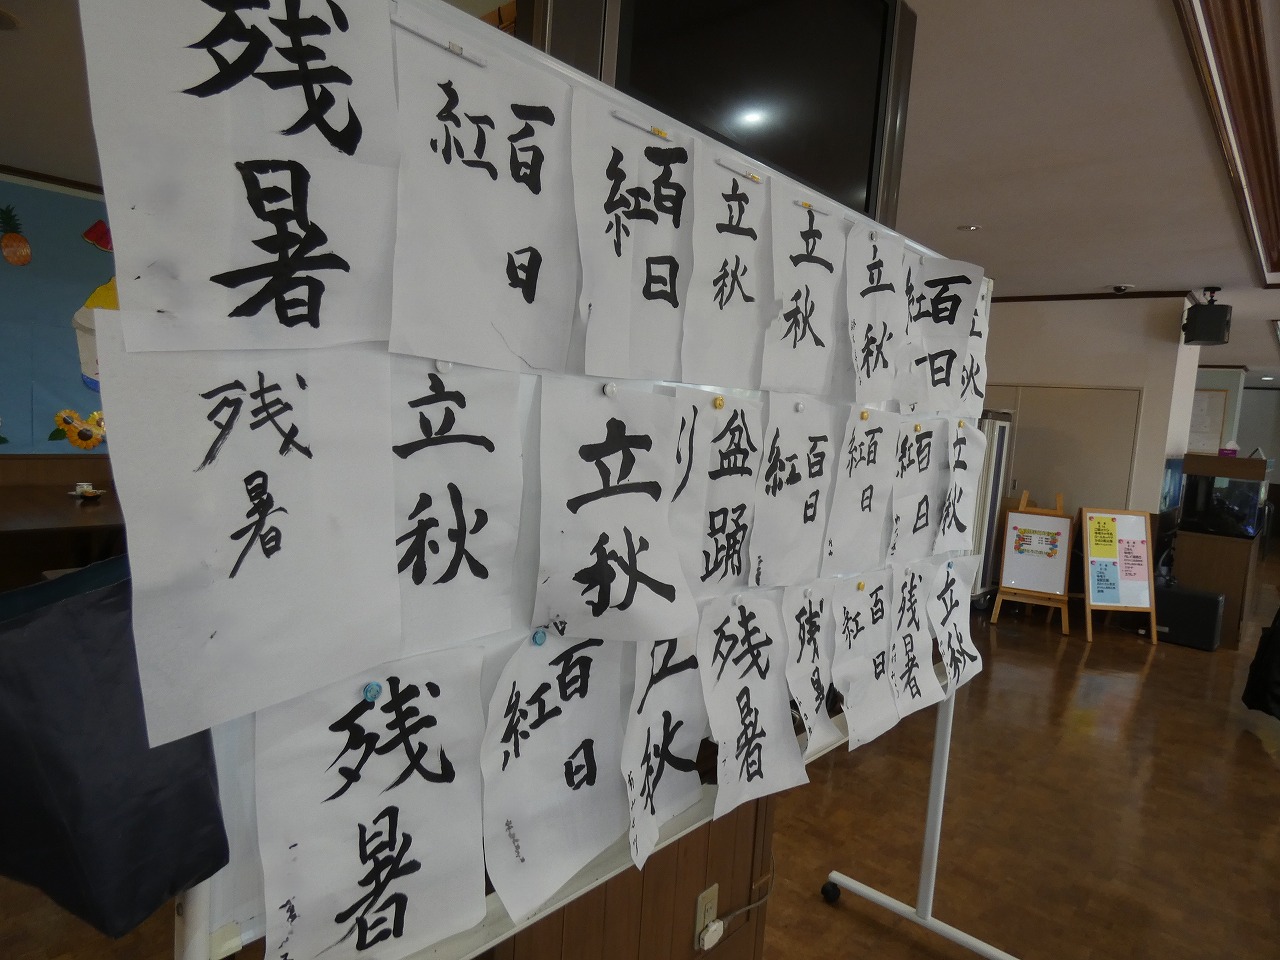 残暑
百日
紅
百日
紅
立秋
立秋
立秋
百日
紅
立秋
残暑
立秋
立秋
盆踊
り
百日
紅
百日
紅
百日
紅
立秋
残暑
百日
紅
立秋
残暑
残暑
百日
紅
残暑
立秋